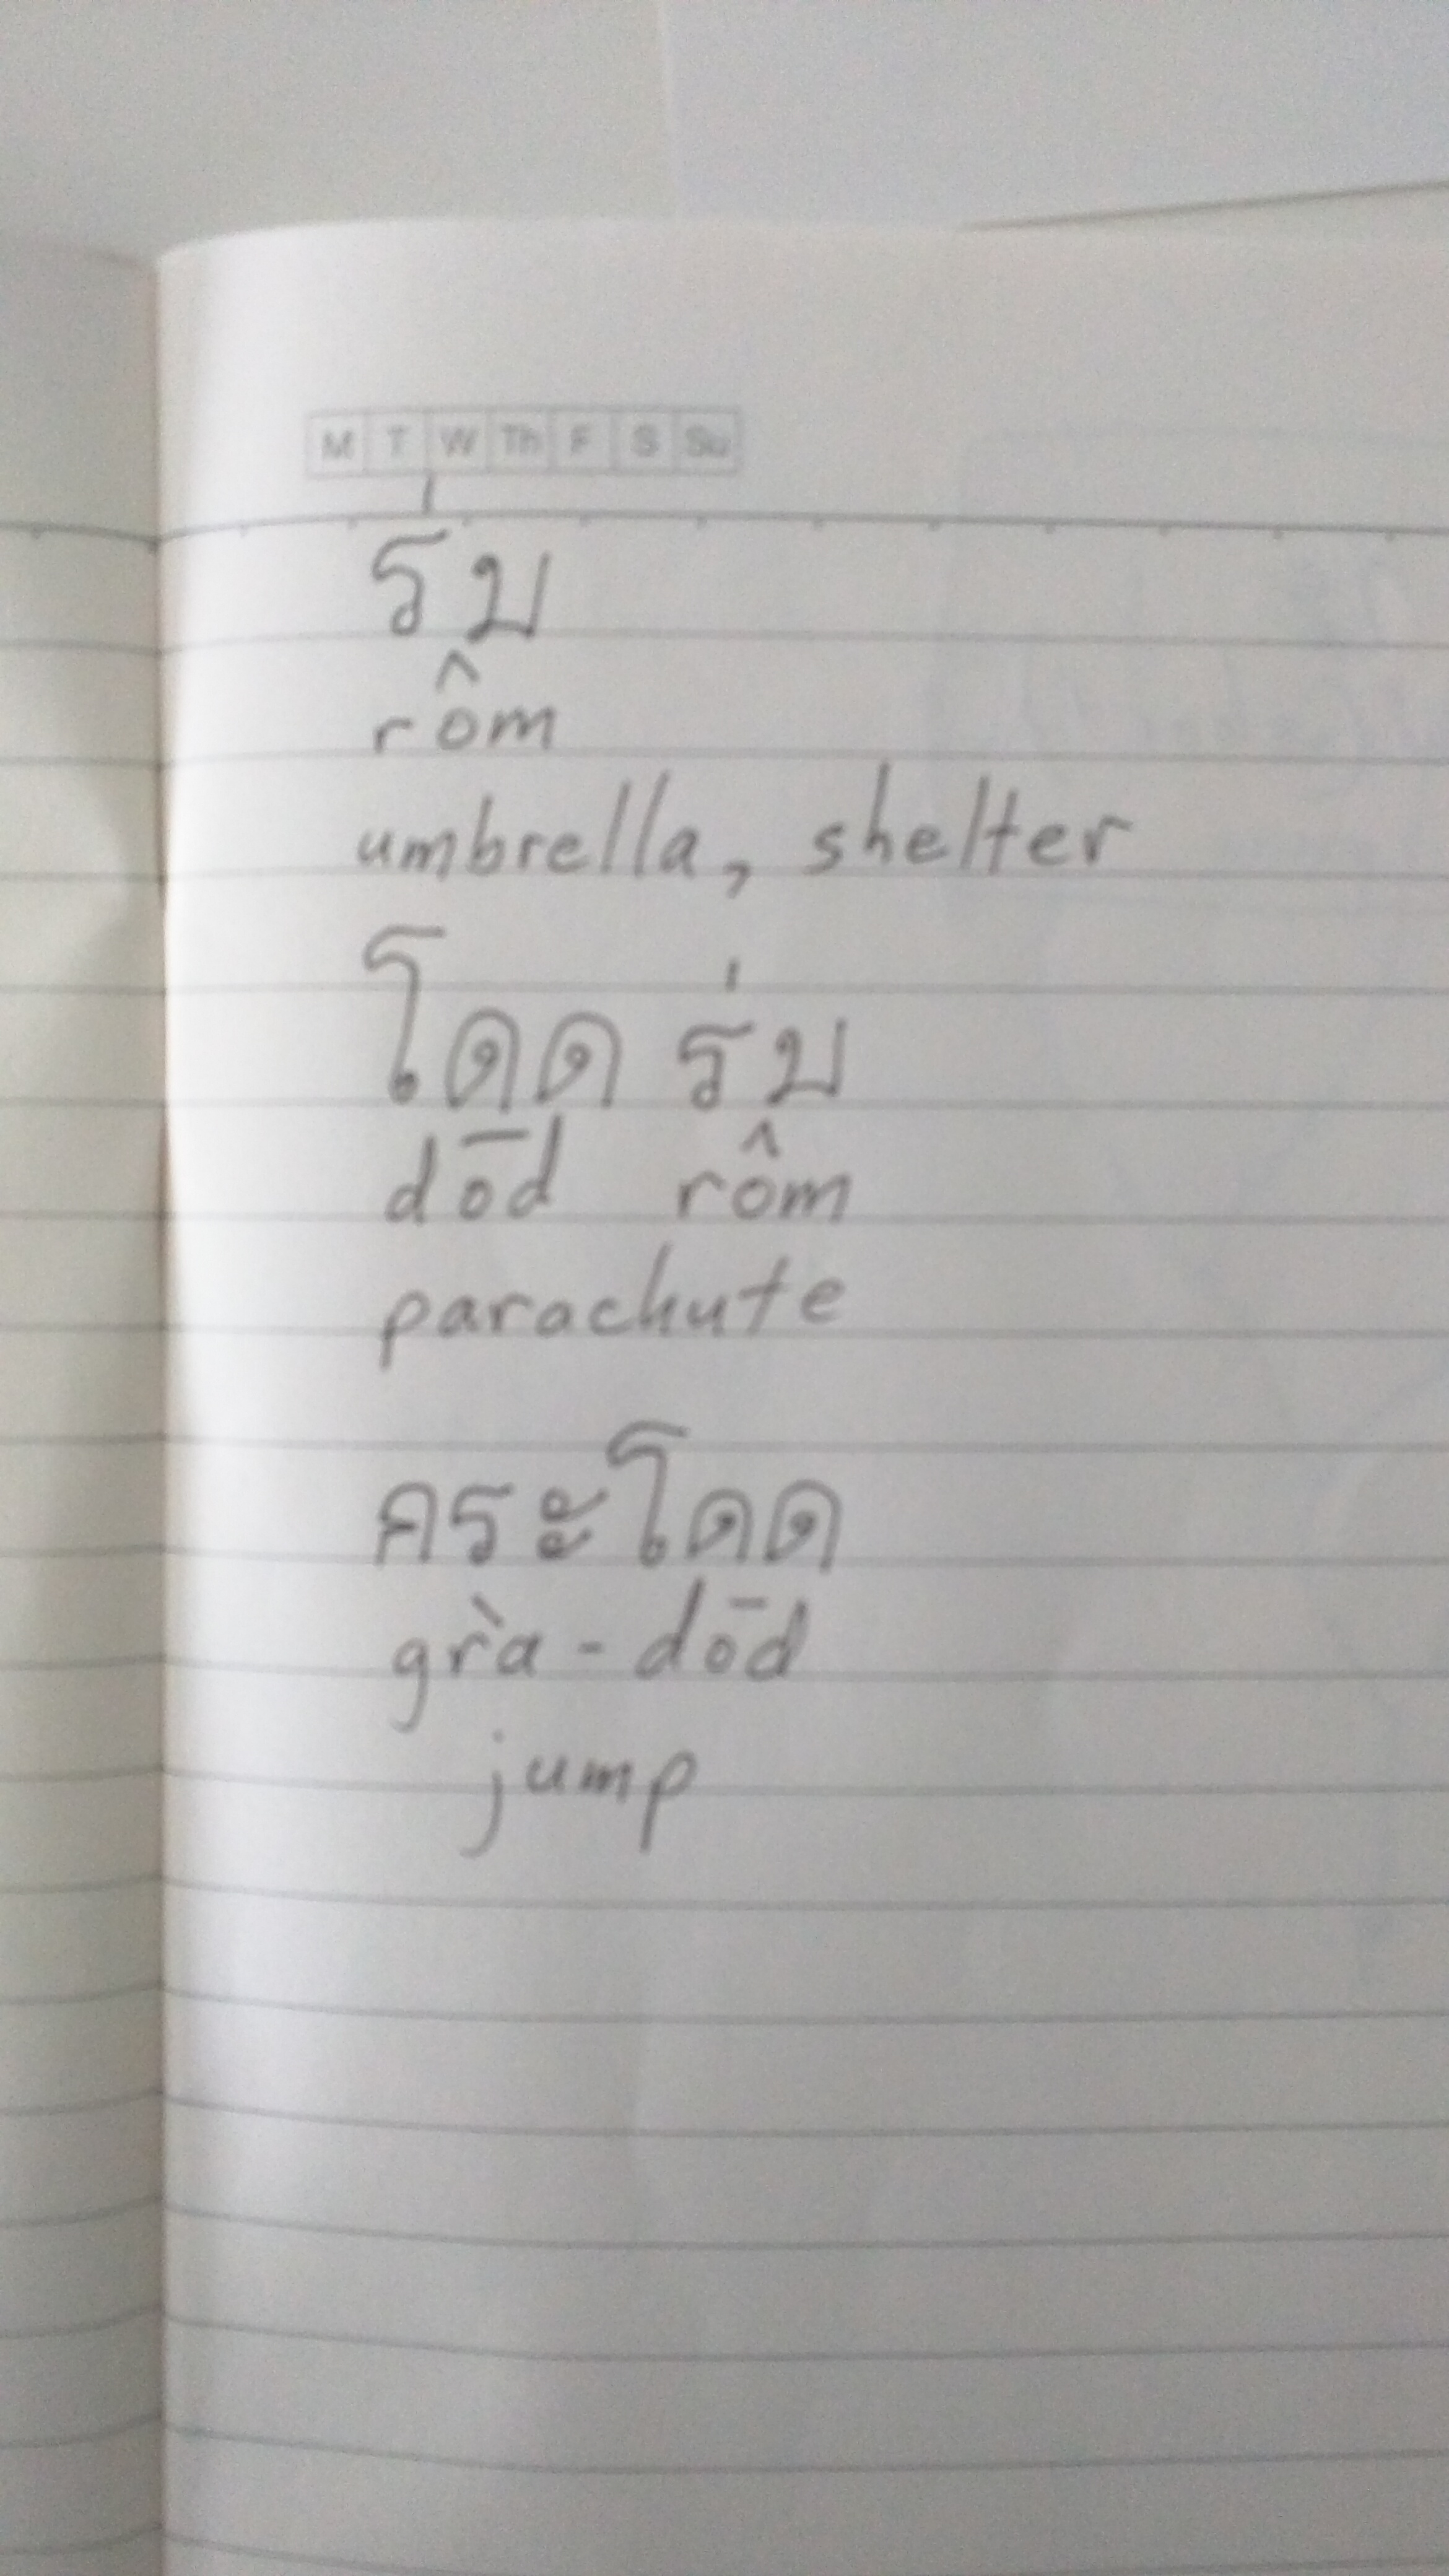 M T W Th F S Su
ร่ม
rôm
umbrella, shelter
โดด ร่ม
dōd rôm
parachute
กระโดด
grà - dōd
jump